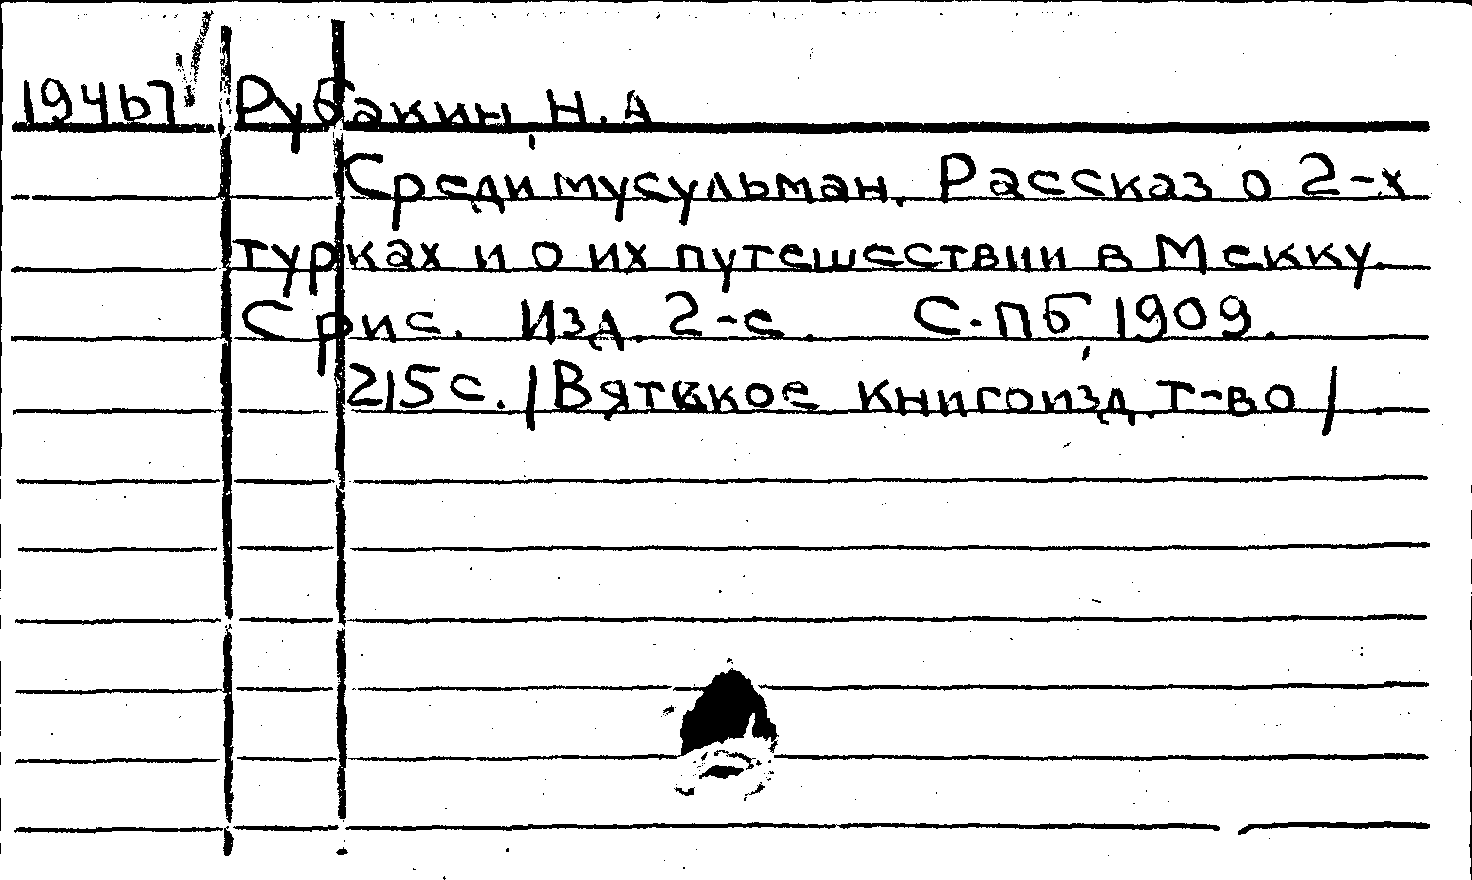 19467 Рубакин, Н.А
Среди мусульман. Рассказ о 2-х
турках и о их путешествии в Мекку.
С рис. Изд. 2-е. С.ПБ, 1909.
215 с. /Вятское книгоизд. т-во/